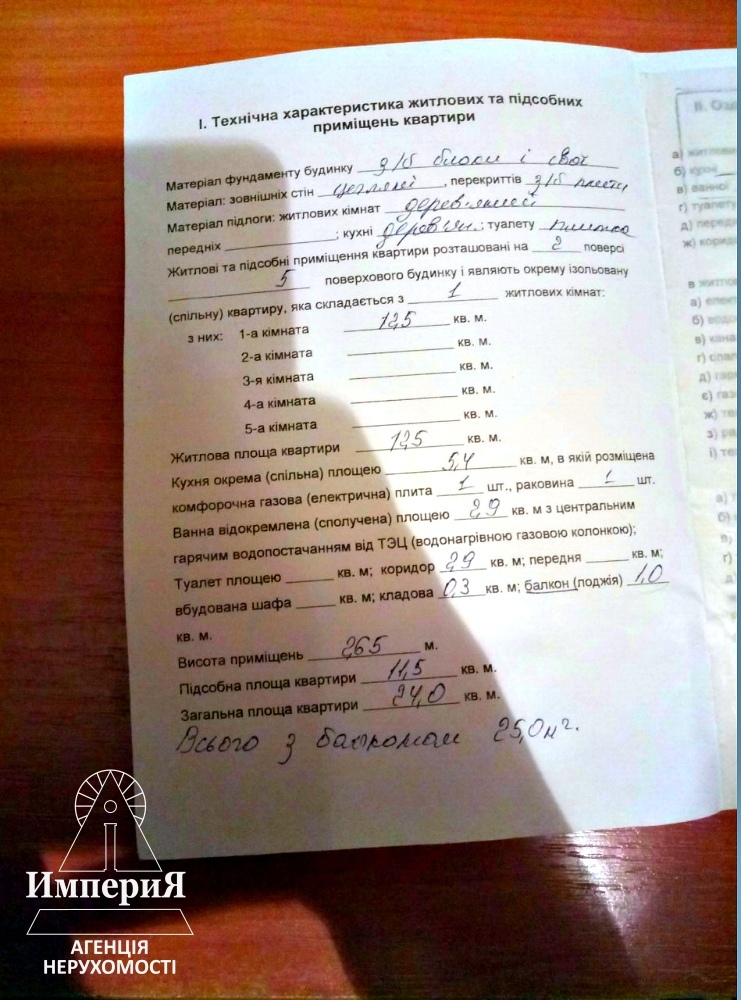 І. Технічна характеристика житлових та підсобних
приміщень квартири
Матеріал фундаменту будинку з/б блоки і свої
Матеріал: зовнішніх стін цегляні, перекриттів з/б плити
Матеріал підлоги: житлових кімнат дерев'яний
передніх ; кухні дерев'ян.; туалету плитка
Житлові та підсобні приміщення квартири розташовані на 2 поверсі
5 поверхового будинку і являють окрему ізольовану
(спільну) квартиру, яка складається з 1 житлових кімнат:
з них: 1-а кімната 12,5 кв. м.
2-а кімната кв. м.
3-я кімната кв. м.
4-а кімната кв. м.
5-а кімната кв. м.
Житлова площа квартири 12,5 кв. м.
Кухня окрема (спільна) площею 5,4 кв. м, в якій розміщена
комфорочна газова (електрична) плита 1 шт., раковина 1 шт.
Ванна відокремлена (сполучена) площею 2,9 кв. м з центральним
гарячим водопостачанням від ТЭЦ (водонагрівною газовою колонкою);
Туалет площею кв. м; коридор 2,9 кв. м; передня кв. м;
вбудована шафа кв. м; кладова 0,3 кв. м; балкон (лоджія) 1,0
кв. м.
Висота приміщень 2,65 м.
Підсобна площа квартири 11,5 кв. м.
Загальна площа квартири 24,0 кв. м.
Всього з балконом 25,0 м².
ІІ.
а)
б) кухні
в) ванної
г) туалету
д)
ж)
а)
б)
в)
г)
д)
є)
ж)
з)
і)
а)
б)
в)
г)
ИмпериЯ
АГЕНЦІЯ
НЕРУХОМОСТІ